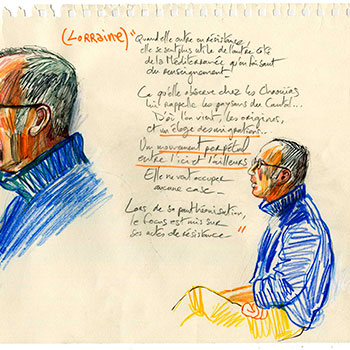 (Lorraine) "Quand elle entre en résistance,
elle se sent plus utile de l'autre côté
de la Méditerranée qu'en faisant
du renseignement -
Ce qu'elle observe chez les Chaouias
lui rappelle les paysans du Cantal...
D'où l'on vient, les origines,
et un éloge des migrations...
Un mouvement perpétuel
entre l'ici et l'ailleurs
Elle ne veut occuper
aucune case -
Lors de sa panthéonisation,
le focus est mis sur
ses actes de résistance - "